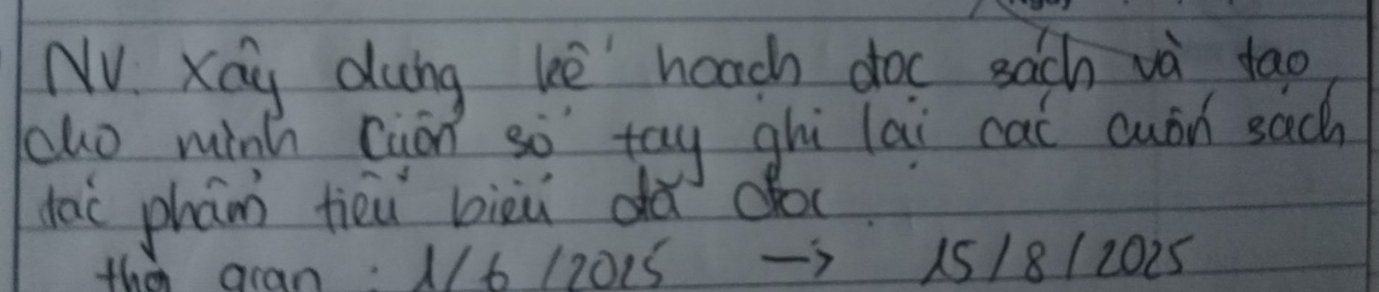 NV. Xây dựng kế hoạch đọc sách và tạo
cho mình cuốn sổ tay ghi lại các cuốn sách
tác phẩm tiêu biểu đã đọc.
thời gian : 1/6/2025 -> 15/8/2025